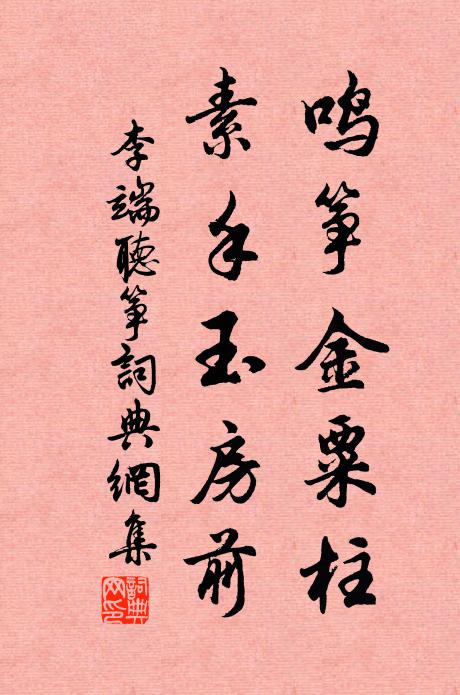 鸣筝金粟柱
素手玉房前
李端聽筝詞典網集
詞典網印